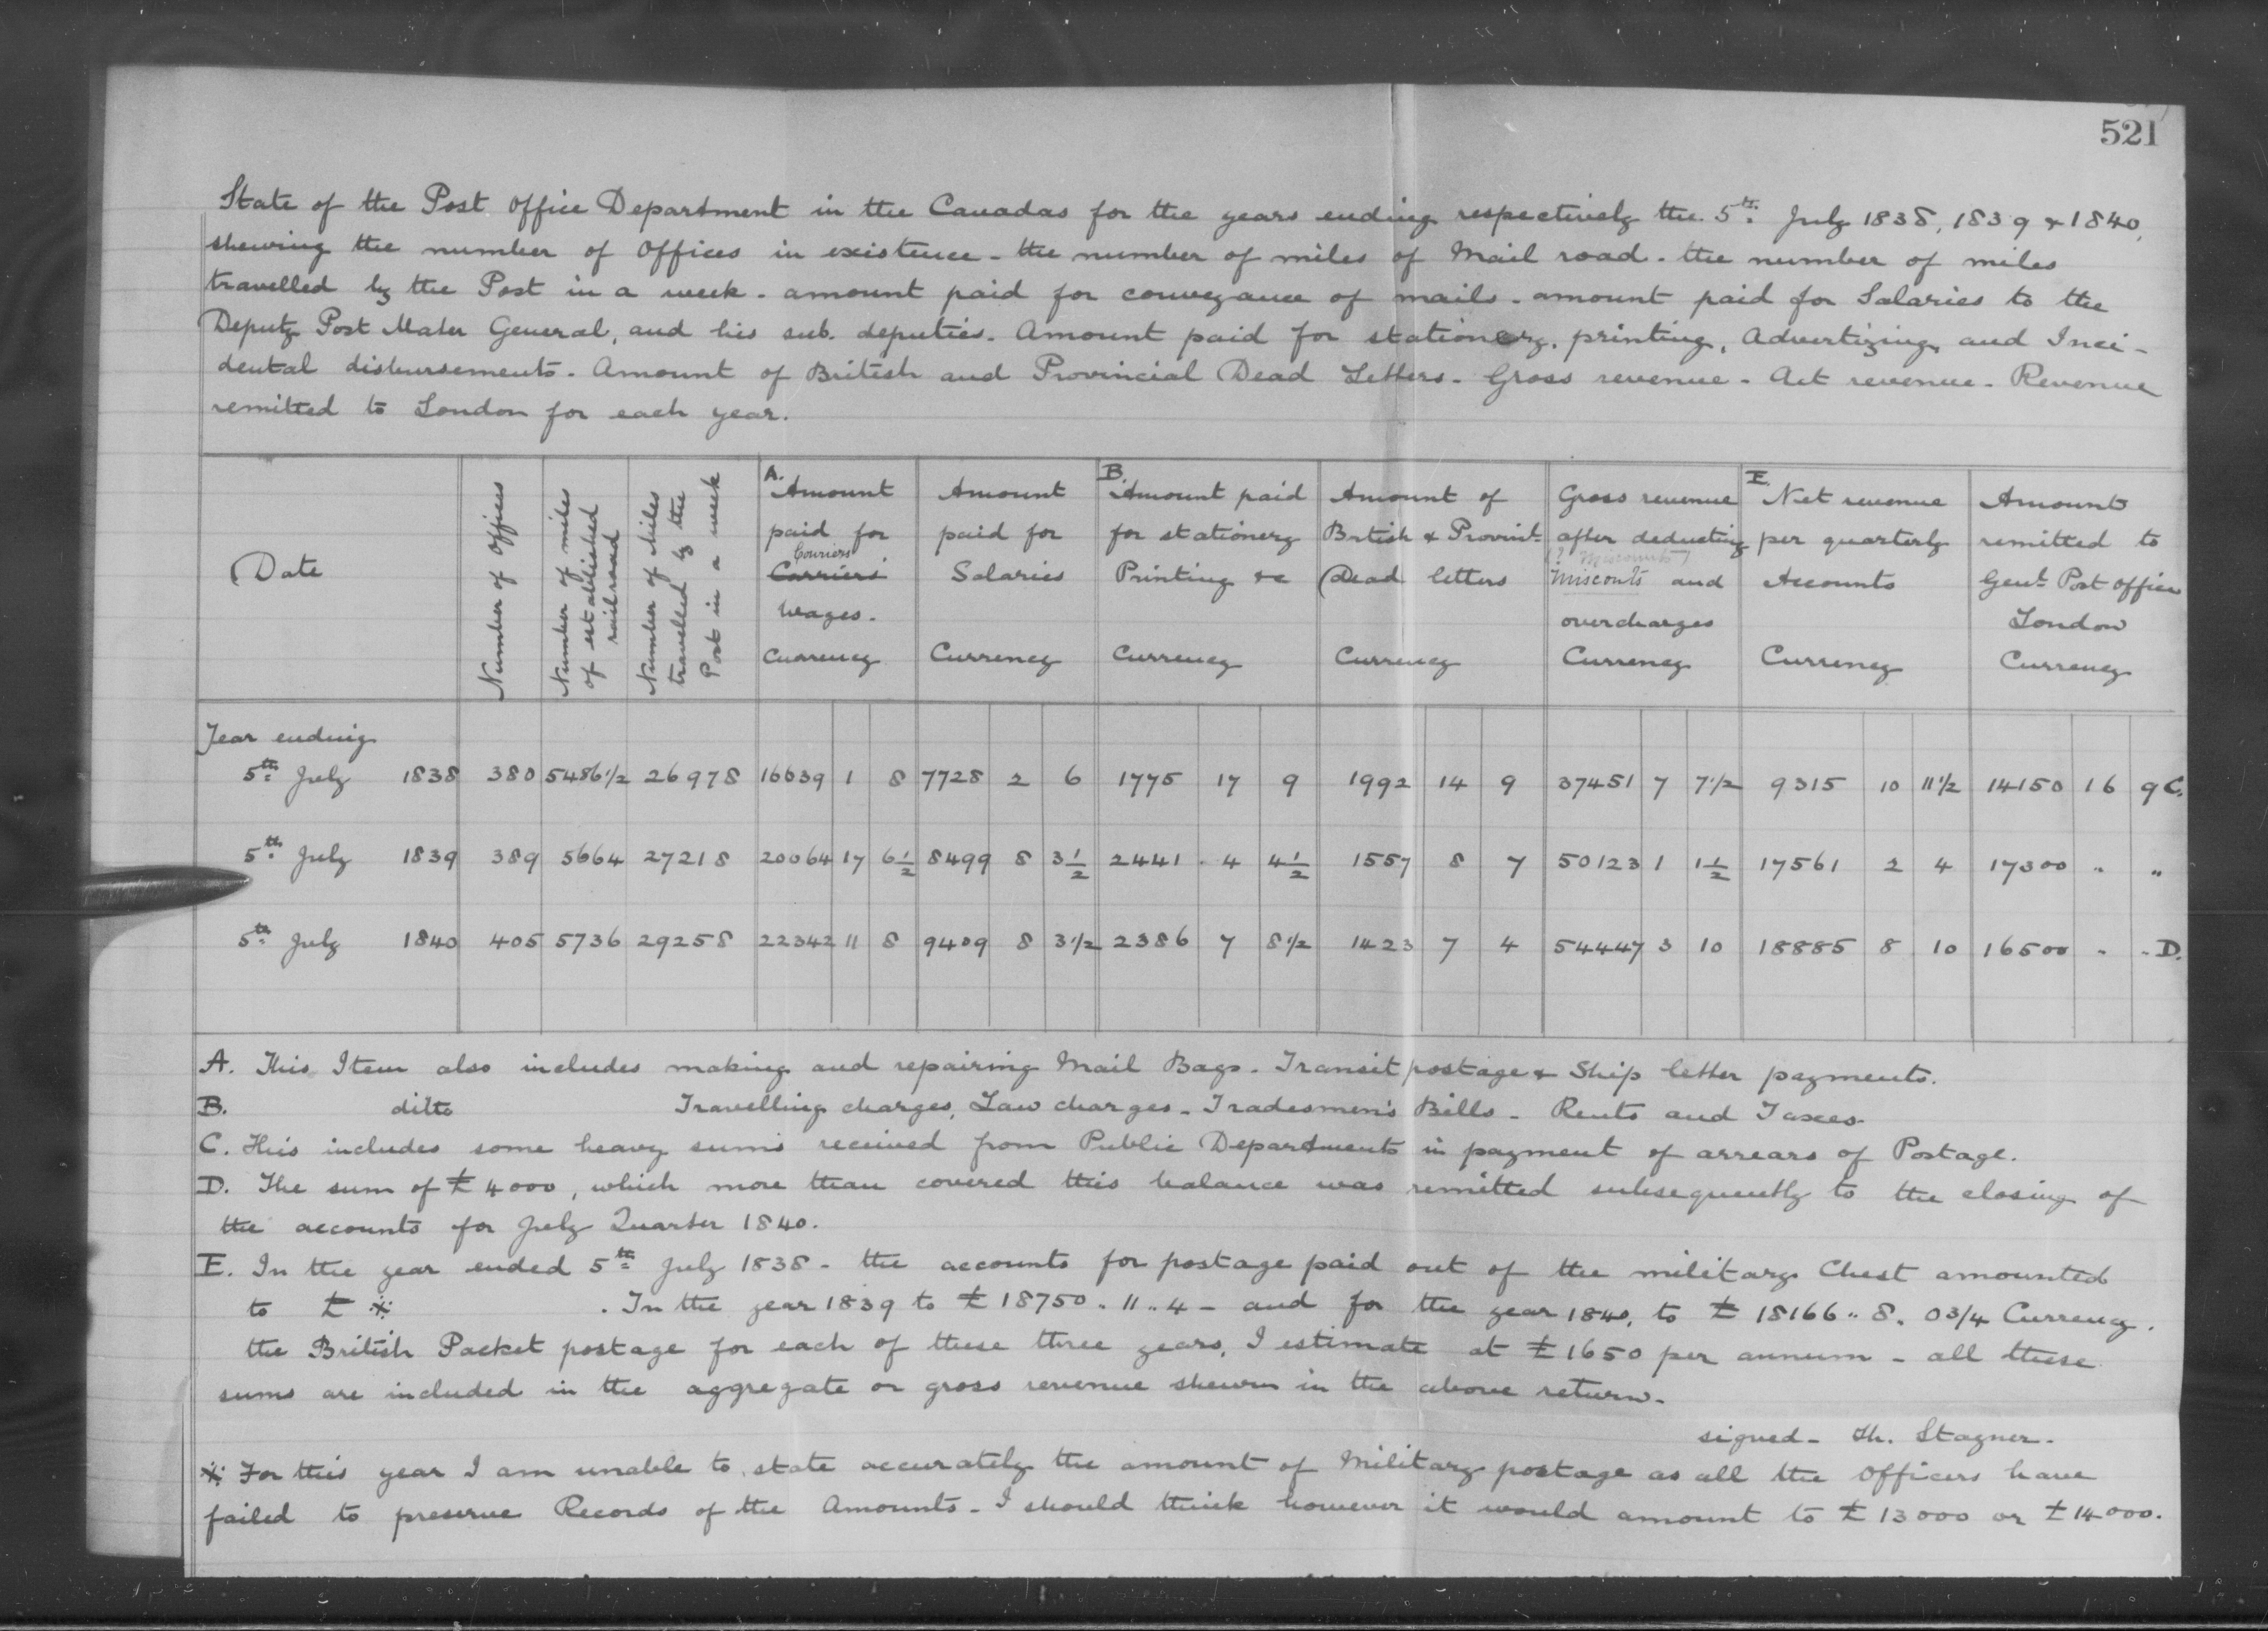 521
State of the Post Office Department in the Canadas for the years ending respectively the 5th July 1838, 1839 & 1840,
shewing the number of Offices in existence - the number of miles of Mail road - the number of miles
travelled by the Post in a week - amount paid for conveyance of mails - amount paid for Salaries to the
Deputy Post Mater General, and his sub. deputies - Amount paid for stationery, printing, Advertizing, and Inci-
dental disbursements - Amount of British and Provincial Dead Letters - Gross revenue - Act revenue - Revenue
remitted to London for each year.
Date
Number of Offices
Number of miles
of established
railroad
Number of Miles
travelled by the
Post in a week
A. Amount
paid for
Couriers
Carriers'
Wages.
Currency
Amount
paid for
Salaries
Currency
B. Amount paid
for stationery
Printing &c
Currency
Amount of
British & Provinl.
Dead letters
Currency
Gross revenue
after deducting
(? Miscounts)
Misconts and
overcharges
Currency
E. Net revenue
per quarterly
Accounts
Currency
Amount
remitted to
Genl. Post office
London
Currency
Year ending
5th July 1838 380 5486 1/2 26978 16639 1 8 7728 2 6 1775 17 9 1992 14 9 37451 7 7 1/2 9315 10 11 1/2 14150 16 9 C.
5th July 1839 389 5664 27218 20064 17 6 1/2 8499 8 3 1/2 2441 4 4 1/2 1557 8 7 50123 1 1 1/2 17561 2 4 17300 " "
5th July 1840 405 5736 29258 22342 11 8 9409 8 3 1/2 2386 7 8 1/2 1423 7 4 54447 3 10 18885 8 10 16500 - - D.
A. This Item also includes making and repairing Mail Bags - Transit postage & Ship letter payments.
B. ditto Travelling charges, Law charges - Tradesmen's Bills - Rents and Taxes
C. This includes some heavy sums received from Public Departments in payment of arrears of Postage.
D. The sum of £4000, which more than covered this balance was remitted subsequently to the closing of
the accounts for July Quarter 1840.
E. In the year ended 5th July 1838 - the accounts for postage paid out of the military Chest amounted
to £ ※ . In the year 1839 to £18750 .. 11 .. 4 - and for the year 1840, to £18166 .. 8 . 0 3/4 Currency.
the British Packet postage for each of these three years, I estimate at £1650 per annum - all these
sums are included in the aggregate or gross revenue shewn in the above return.
signed - Th. Stayner -
※ For this year I am unable to state accurately the amount of Military postage as all the Officers have
failed to preserve Records of the Amounts - I should think however it would amount to £13000 or £14000.